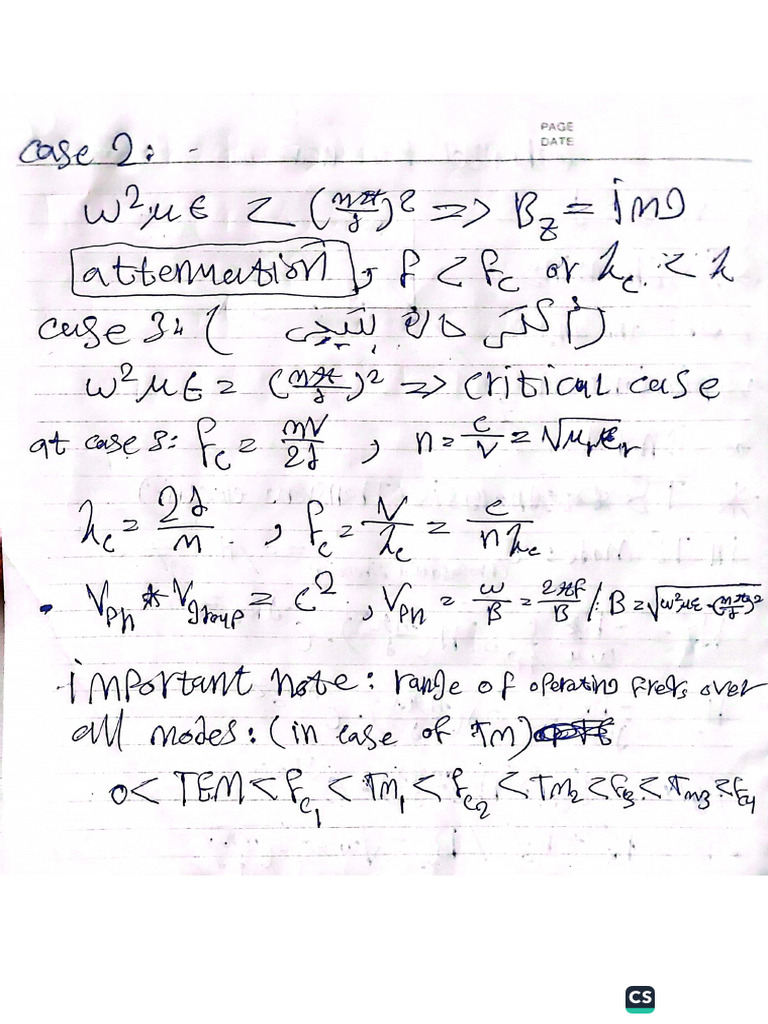 PAGE
DATE
case 2: -
w²με < (mπ/d)² => B_z = img
attenuation, f < f_c or λ_c < λ
case 3: (
w²με = (mπ/d)² => critical case
at case 3: f_c = mV/2d, n = c/V = √μ_r ε_r
λ_c = 2d/m, f_c = V/λ_c = c/nλ_c
• V_ph * V_group = c², V_ph = w/B = 2πf/B / B = √w²με - (mπ/d)²
important note: range of operating freqs over
all modes: (in case of TM)
0 < TEM < f_c1 < TM_1 < f_c2 < TM_2 < f_c3 < TM_3 < f_c4
CS